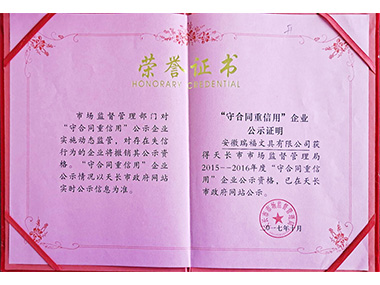 荣誉证书
HONORARY CREDENTIAL
市场监督管理部门对
“守合同重信用”公示企业
实施动态监管，对存在失信
行为的企业将撤销其公示资
格。“守合同重信用”企业
公示情况以天长市政府网站
实时公示信息为准。
“守合同重信用”企业
公示证明
安徽瑞福文具有限公司获
得天长市市场监督管理局
2015--2016年度“守合同重信
用”企业公示资格，已在天长
市政府网站公示。
二〇一七年十月